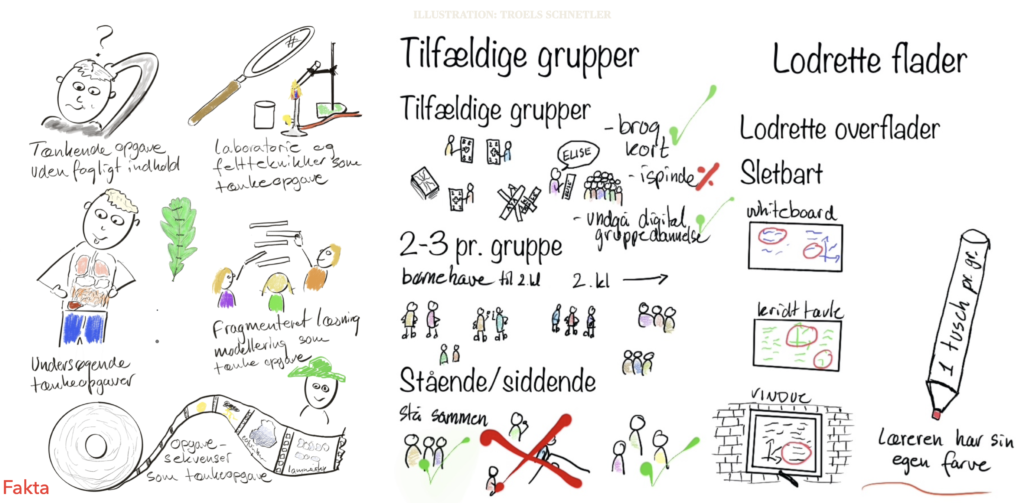 ILLUSTRATION: TROELS SCHNETLER
?
Tænkende opgave
uden fagligt indhold
Laboratorie og
feltteknikker som
tænkeopgave
Undersøgende
tænkeopgaver
Fragmenteret læsning
modellering som
tænkeopgave
opgave-
sekvenser
som tænkeopgave
Fakta
Tilfældige grupper
Tilfældige grupper
- brug
kort
ELISE
- ispinde
- undgå digital
gruppedannelse
2-3 pr. gruppe
børnehave til 2.kl
2. kl
Stående/siddende
Stå sammen
Lodrette flader
Lodrette overflader
Sletbart
whiteboard
kridttavle
VINDUE
1 tusch pr. gr.
Læreren har sin
egen farve